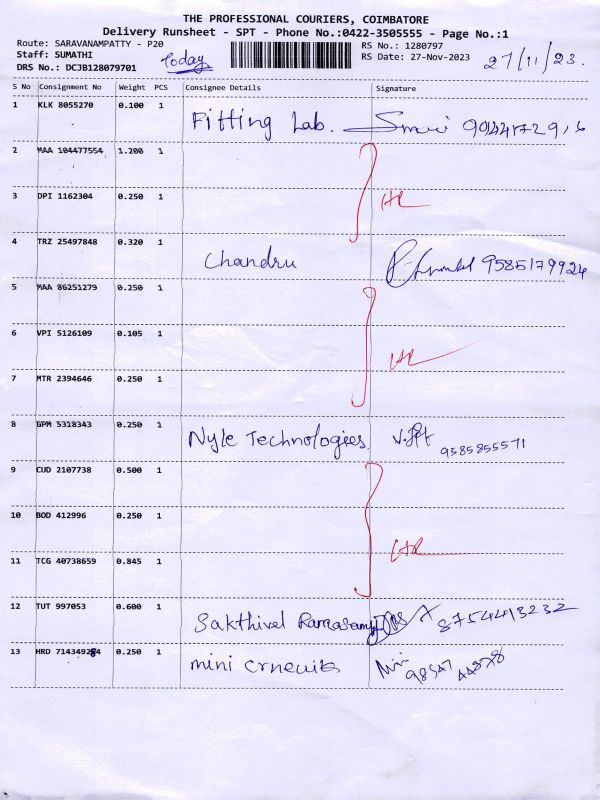 THE PROFESSIONAL COURIERS, COIMBATORE
Delivery Runsheet - SPT - Phone No.:0422-3505555 - Page No.:1
Route: SARAVANAMPATTY - P20
Staff: SUMATHI
DRS No.: DCJB128079701
Today
RS No.: 1280797
RS Date: 27-Nov-2023
27/11/23.
S No Consignment No Weight PCS Consignee Details Signature
1 KLK 8055270 0.100 1 Fitting Lab.
2 MAA 104477554 1.200 1
3 DPI 1162304 0.250 1
4 TRZ 25497848 0.320 1 Chandru 9585179924
5 MAA 86251279 0.250 1
6 VPI 5126109 0.105 1
7 MTR 2394646 0.250 1
8 GPM 5318343 0.250 1 Nyle Technologies 9385855571
9 CUD 2107738 0.500 1
10 BOD 412996 0.250 1
11 TCG 40738659 0.845 1
12 TUT 997053 0.600 1 Sakthivel Ramasamy 8754413232
13 HRD 714349284 0.250 1 mini